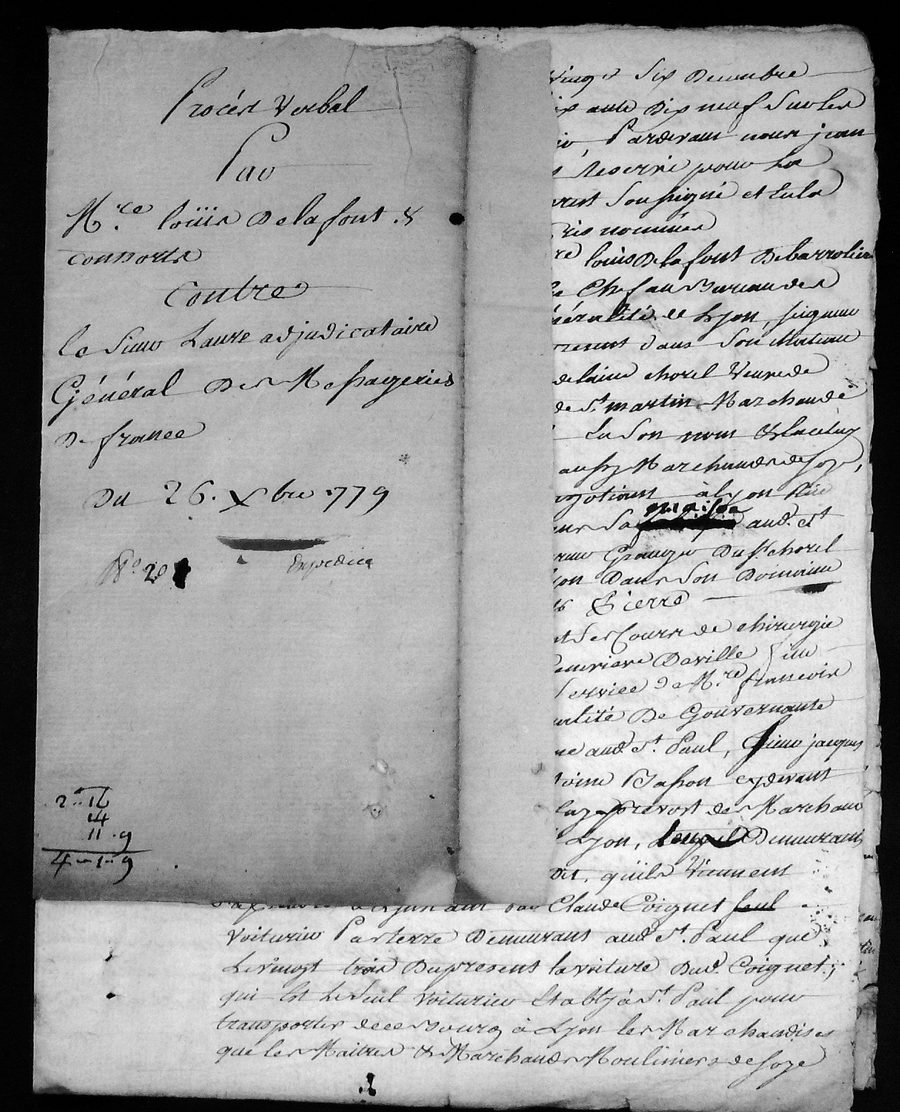 Procést Verbal
Par
M.re loüis Delafont &
consorts
Contre
le Sieur Laure adjudicataire
Général Des Messageries
De france
Du 26. Xbre 1779
N.o 20
Expédiée
2 " 16
14
11 . 9
4 " 1 " 9
vingt Six Decembre
ante Dix neuf Sur les
Pardevant nous jean
reservé pour la
Soussigné et En la
nommés
louis Delafont Debarrolière
Chef au Bureau des
néralité de Lyon, seigneur
dans Son chateau
delaine chorel Veuve de
de St martin Marchande
En Son nom
aussy Marchands de soye,
négotiant à Lyon
Sa maison aud. St
Grange Du Sr chorel
Dans Son Domaine
Pierre
Ses Cours de chirurgie
Genevieve Deville
Service de M.re françois
qualité De Gouvernante
aud. St. Paul, Sieur jacques
toine Basson cydevant
prevost des Marchand
Lyon, Demeurant
dit, qu'ils Viennent
à Lyon Claude Coignet seul
Voiturier Par terre Demeurant aud. St. Paul que
Le vingt trois Du present la voiture Dud. Coignet,
qui Est Le Seul Voiturier Etably à St. Paul pour
transporter de ce Bourg à Lyon les Marchandises
que les Maitres & Marchands Mouliniers de soye